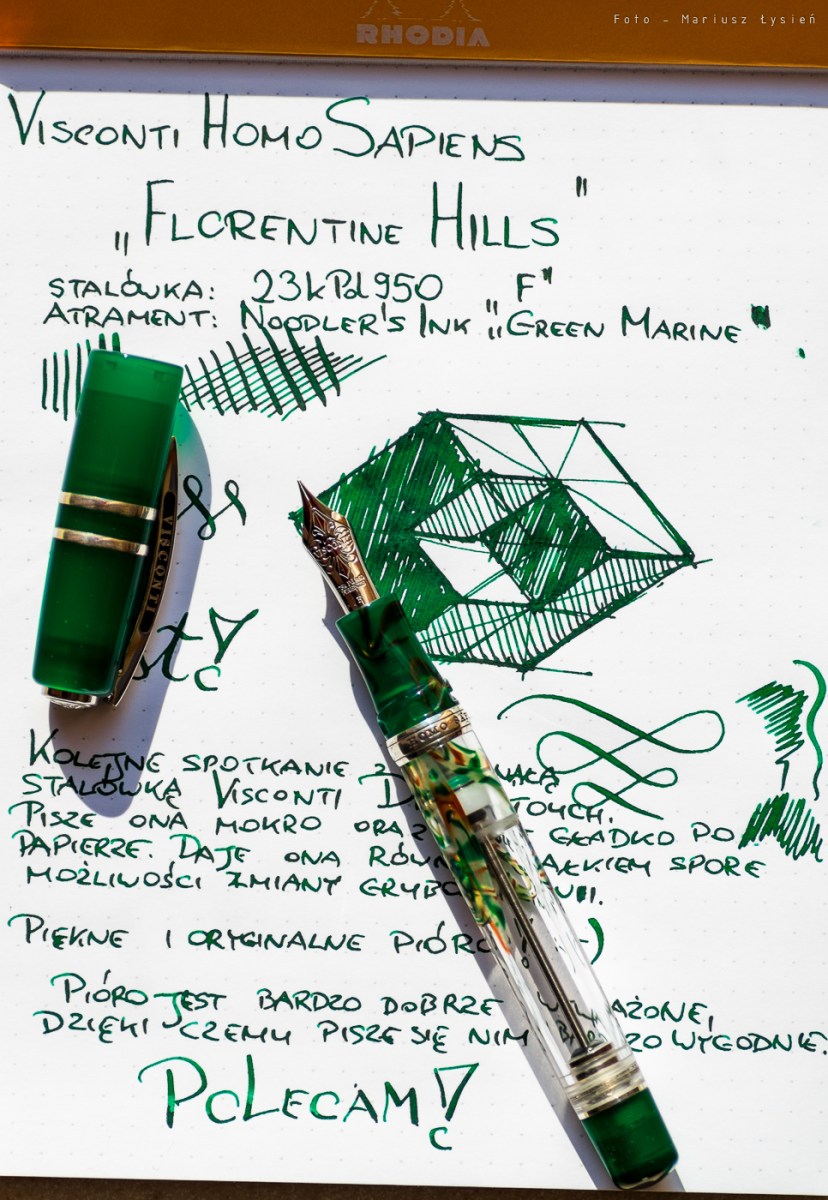 Foto - Mariusz Łysień
RHODIA
VISCONTI HOMO SAPIENS
„FLORENTINE HILLS"
STALÓWKA: 23kPd950 F"
ATRAMENT: NOODLER'S INK „GREEN MARINE"
VISCONTI
KOLEJNE SPOTKANIE Z
STALÓWKĄ VISCONTI
PISZE ONA MOKRO ORAZ GŁADKO PO
PAPIERZE. DAJE ONA SPORE
MOŻLIWOŚCI ZMIANY
PIĘKNE I ORYGINALNE PIÓRO! :-)
PIÓRO JEST BARDZO DOBRZE
DZIĘKI CZEMU PISZE SIĘ NIM WYGODNIE.
POLECAM!